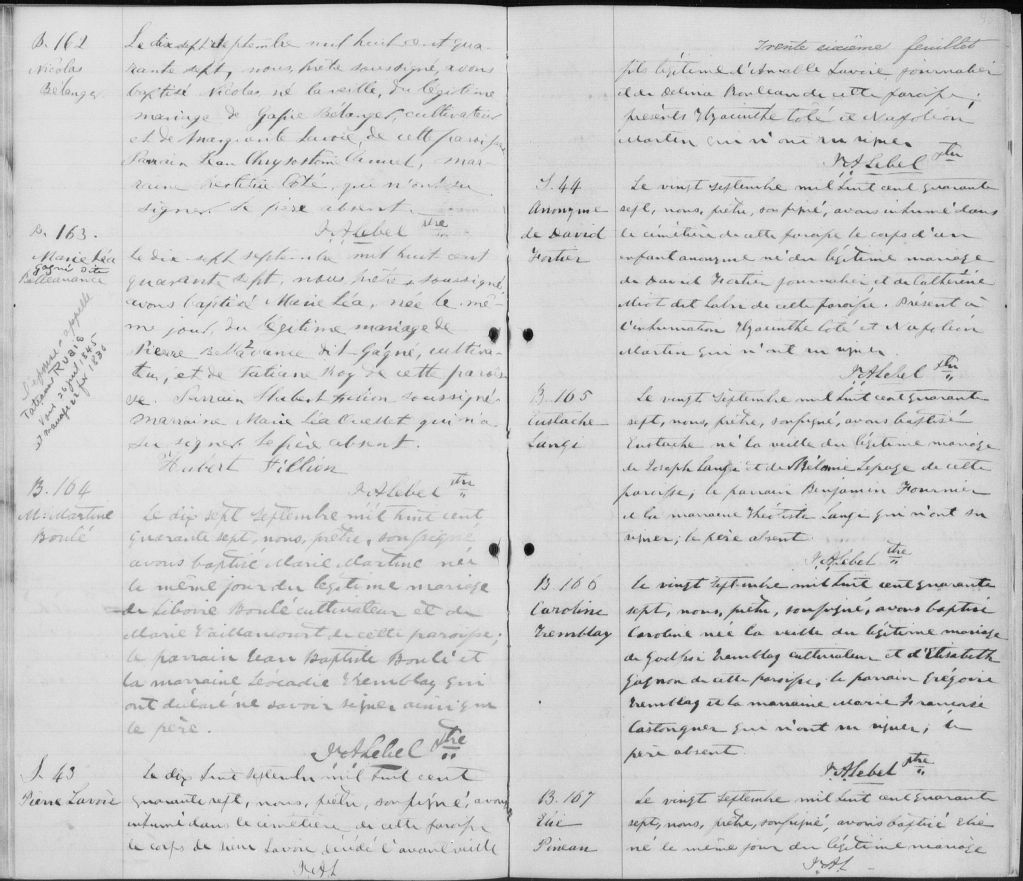 B. 162
Nicolas
Bélanger
Le dix sept septembre mil huit cent qua-
rante sept, nous, prêtre soussigné, avons
baptisé Nicolas, né la veille, du légitime
mariage de Bélanger, cultivateur
et de Marguerite Lavoie, de cette paroisse
Parrain Jean Chrysostôme mar-
raine Côté, qui n'ont su
signer. Le père absent.
J. A. Lebel ptre
B. 163.
Marie Léa
Gagné dite
Bellavance
L'épouse s'appelle
Tatiana Ruais
Le dix sept septembre mil huit cent
quarante sept, nous prêtre soussigné
avons baptisé Marie Léa, née le mê-
me jour, du légitime mariage de
Pierre Bellavance dit Gagné, cultiva-
teur, et de Tatiane Roy de cette parois-
se. Parrain Hubert Fillion, soussigné
marraine Marie Léa Ouellet qui n'a
su signer. Le père absent.
Hubert Fillion
J. A. Lebel ptre
B. 164
M. Martine
Boulé
Le dix sept Septembre mil huit cent
quarante sept, nous, prêtre, soussigné
avons baptisé Marie Martine née
le même jour du légitime mariage
de Liboire Boulé cultivateur et de
Marie Vaillancourt, de cette paroisse;
le parrain Jean Baptiste Boulé et
la marraine Léocadie Tremblay qui
ont déclaré ne savoir signer ainsi que
le père.
J. A. Lebel ptre
S. 43
Pierre Lavoie
Le dix huit septembre mil huit cent
quarante sept, nous, prêtre, soussigné, avons
inhumé dans le cimetière de cette paroisse
le corps de Pierre Lavoie, décédé l'avant veille
J. A. L
Trente sixième feuillet
fils légitime d'Amable Lavoie, journalier
et de Delina Bouleau de cette paroisse;
présents Hyacinthe Coté et Napoléon
Martin qui n'ont su signer
J. A. Lebel ptre
S. 44
Anonyme
de David
Fortier
Le vingt Septembre mil huit cent quarante
sept, nous, prêtre, soussigné, avons inhumé dans
le cimetière de cette paroisse le corps d'un
enfant anonyme né du légitime mariage
de David Fortier journalier et de Cathérine
Miot dit Labrie de cette paroisse. Présent à
l'inhumation Hyacinthe Coté et Napoléon
Martin qui n'ont su signer.
J. A. Lebel ptre
B. 165
Eustache
Langi
Le vingt Septembre mil huit cent quarante
sept, nous, prêtre, soussigné, avons baptisé
Eustache né la veille du légitime mariage
de Joseph Langi et de Mélanie Lepage de cette
paroisse; le parrain Benjamin Fournier
et la marraine Théotiste Langi qui n'ont su
signer; le père absent
J. A. Lebel ptre
B. 166
Caroline
Tremblay
Le vingt Septembre mil huit cent quarante
sept, nous, prêtre, soussigné, avons baptisé
Caroline née la veille du légitime mariage
de Godfroi Tremblay cultivateur et d'Elisabeth
Gagnon de cette paroisse, le parrain Grégoire
Tremblay et la marraine Marie Françoise
Castonguer qui n'ont su signer; le
père absent.
J. A. Lebel ptre
B. 167
Elie
Pineau
Le vingt Septembre mil huit cent quarante
sept, nous, prêtre, soussigné, avons baptisé Elie
né le même jour du légitime mariage
J. A. L